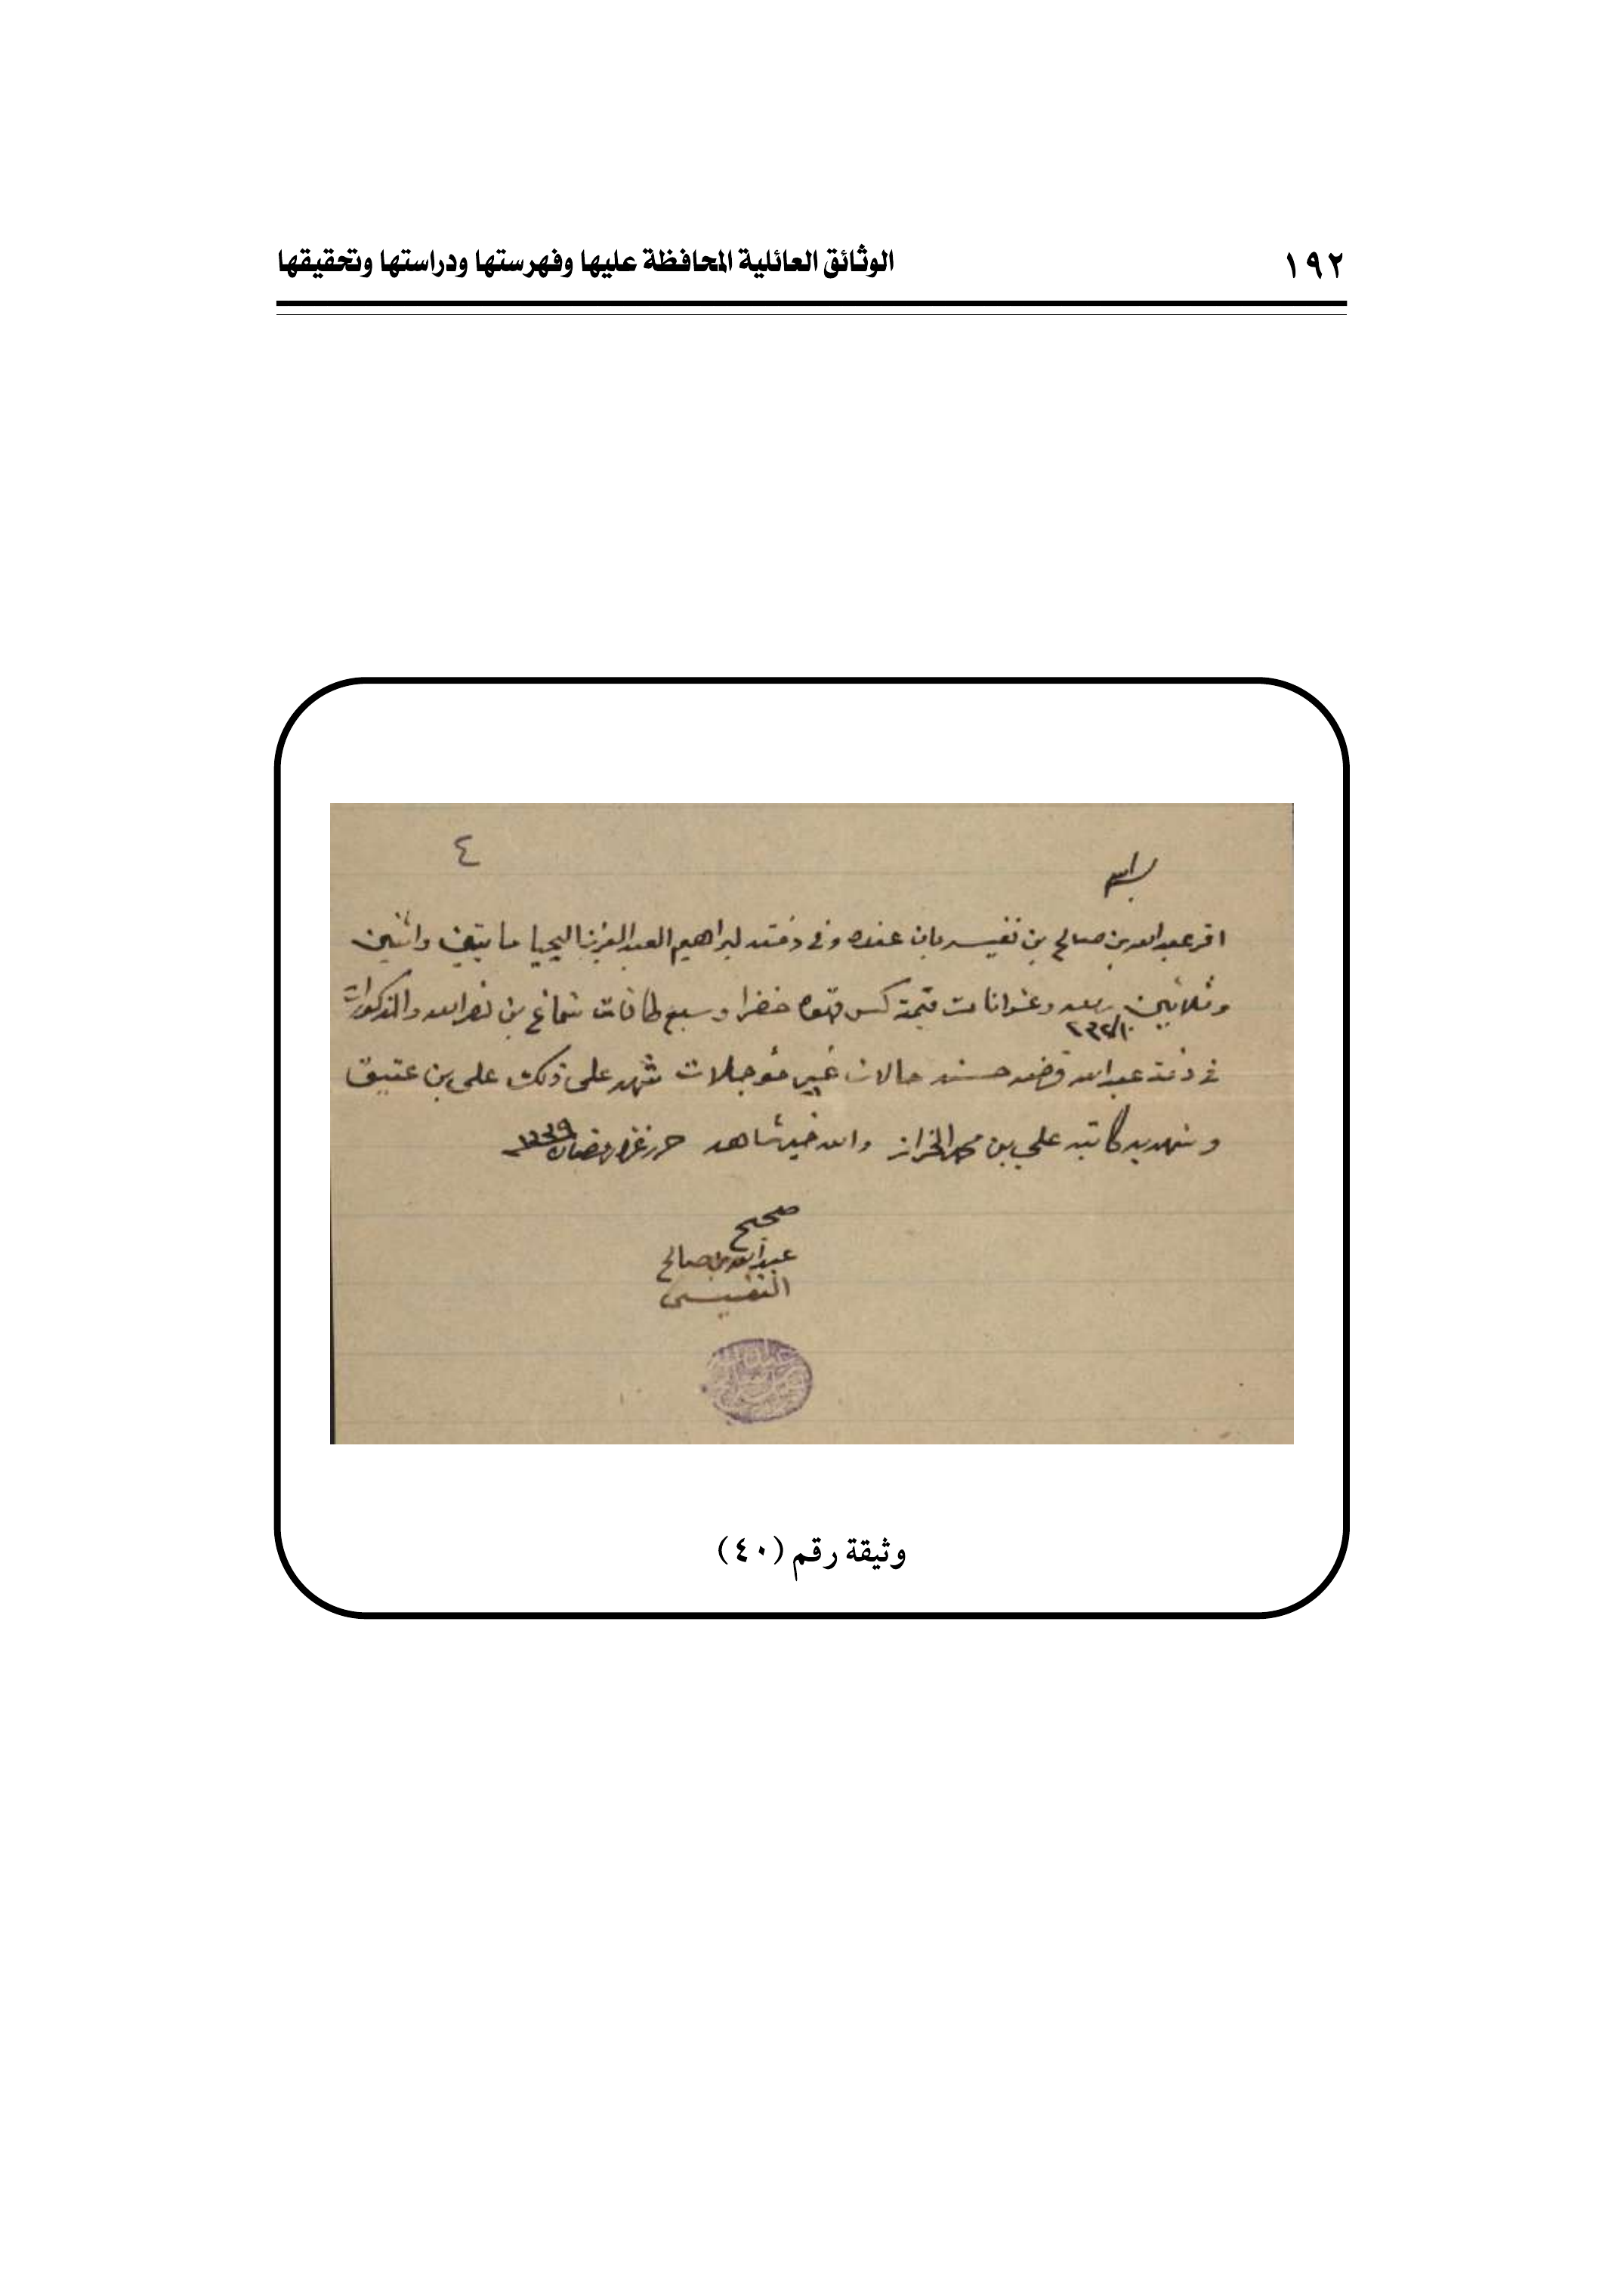 ١٩٢
الوثائق العائلية المحافظة عليها وفهرستها ودراستها وتحقيقها
٤
اقر عبدالله بن صالح بن نفيسه بان عنده وفي ذمته لبراهيم العبدالعزيز اليحيا مايتين واثنين
وثلاثين ريال وعشر انات قيمة كيس قهوه خضرا وسبع طاقات شماغ بن نصرالله والمذكورات
٢٣٢/١٠
في ذمة عبدالله قرضه حسنه حالات غير مؤجلات شهد على ذلك علي بن عتيق
وشهد به كاتبه علي بن محمد الخراز والله خير شاهد حرر غرة رمضان ١٣٣٩
صحيح
عبدالله بن صالح
النفيسى
وثيقة رقم (٤٠)